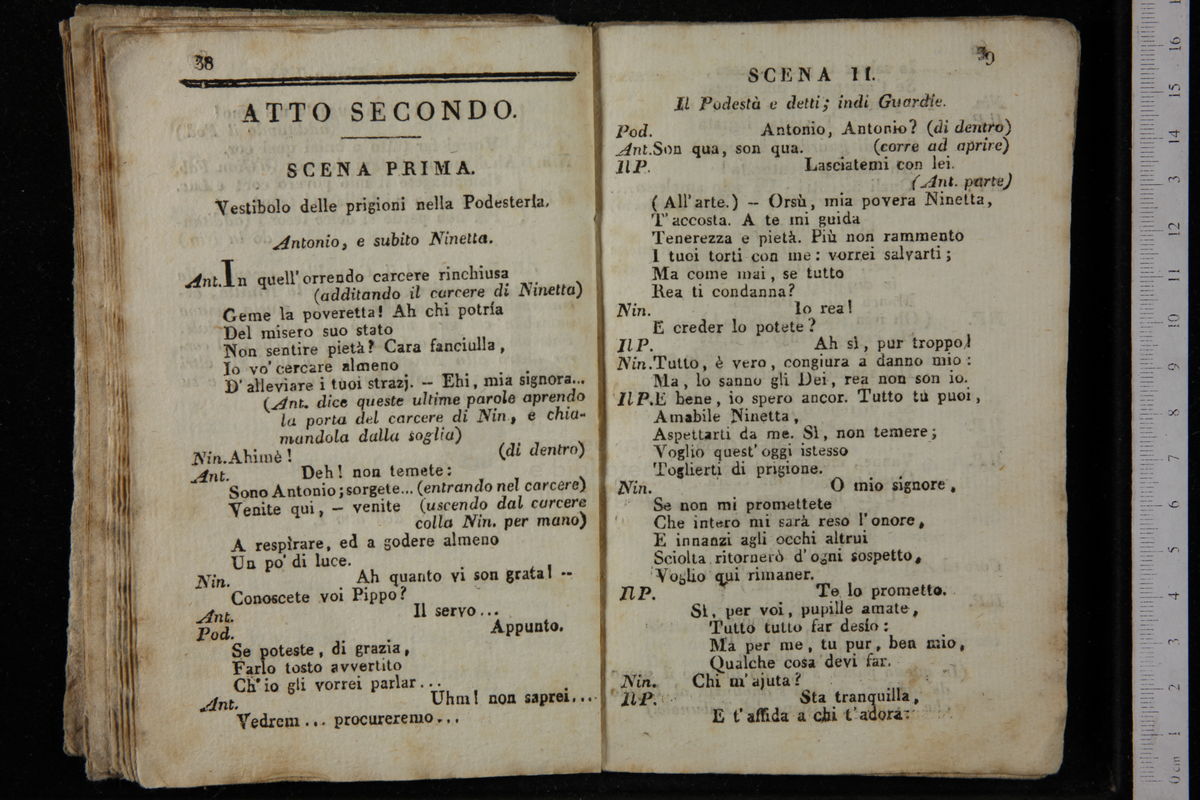 38
ATTO SECONDO.
SCENA PRIMA.
Vestibolo delle prigioni nella Podesteria.
Antonio, e subito Ninetta.
Ant. In quell' orrendo carcere rinchiusa
(additando il carcere di Ninetta)
Geme la poveretta! Ah chi potría
Del misero suo stato
Non sentire pietà? Cara fanciulla,
Io vo' cercare almeno
D' alleviare i tuoi strazj. — Ehi, mia signora...
(Ant. dice queste ultime parole aprendo
la porta del carcere di Nin, e chia-
mandola dalla soglia)
Nin. Ahimè! (di dentro)
Ant. Deh! non temete:
Sono Antonio; sorgete... (entrando nel carcere)
Venite qui, — venite (uscendo dal carcere
colla Nin. per mano)
A respìrare, ed a godere almeno
Un po' di luce.
Nin. Ah quanto vi son grata! --
Conoscete voi Pippo?
Ant. Il servo...
Pod. Appunto.
Se poteste, di grazia,
Farlo tosto avvertito
Ch' io gli vorrei parlar...
Ant. Uhm! non saprei...
Vedrem... procureremo...
39
SCENA II.
Il Podestà e detti; indi Guardie.
Pod. Antonio, Antonio? (di dentro)
Ant. Son qua, son qua. (corre ad aprire)
Il P. Lasciatemi con lei.
(Ant. parte)
(All' arte.) — Orsù, mia povera Ninetta,
T' accosta. A te mi guida
Tenerezza e pietà. Più non rammento
I tuoi torti con me: vorrei salvarti;
Ma come mai, se tutto
Rea ti condanna?
Nin. Io rea!
E creder lo potete?
Il P. Ah sì, pur troppo!
Nin. Tutto, è vero, congiura a danno mio:
Ma, lo sanno gli Dei, rea non son io.
Il P. E bene, io spero ancor. Tutto tu puoi,
Amabile Ninetta,
Aspettarti da me. Sì, non temere;
Voglio quest' oggi istesso
Toglierti di prigione.
Nin. O mio signore,
Se non mi promettete
Che intero mi sarà reso l' onore,
E innanzi agli occhi altrui
Sciolta ritornerò d' ogni sospetto,
Voglio qui rimaner.
Il P. Te lo prometto.
Sì, per voi, pupille amate,
Tutto tutto far desío:
Ma per me, tu pur, ben mio,
Qualche cosa devi far.
Nin. Chi m' ajuta?
Il P. Sta tranquilla,
E t' affida a chi t' adora: